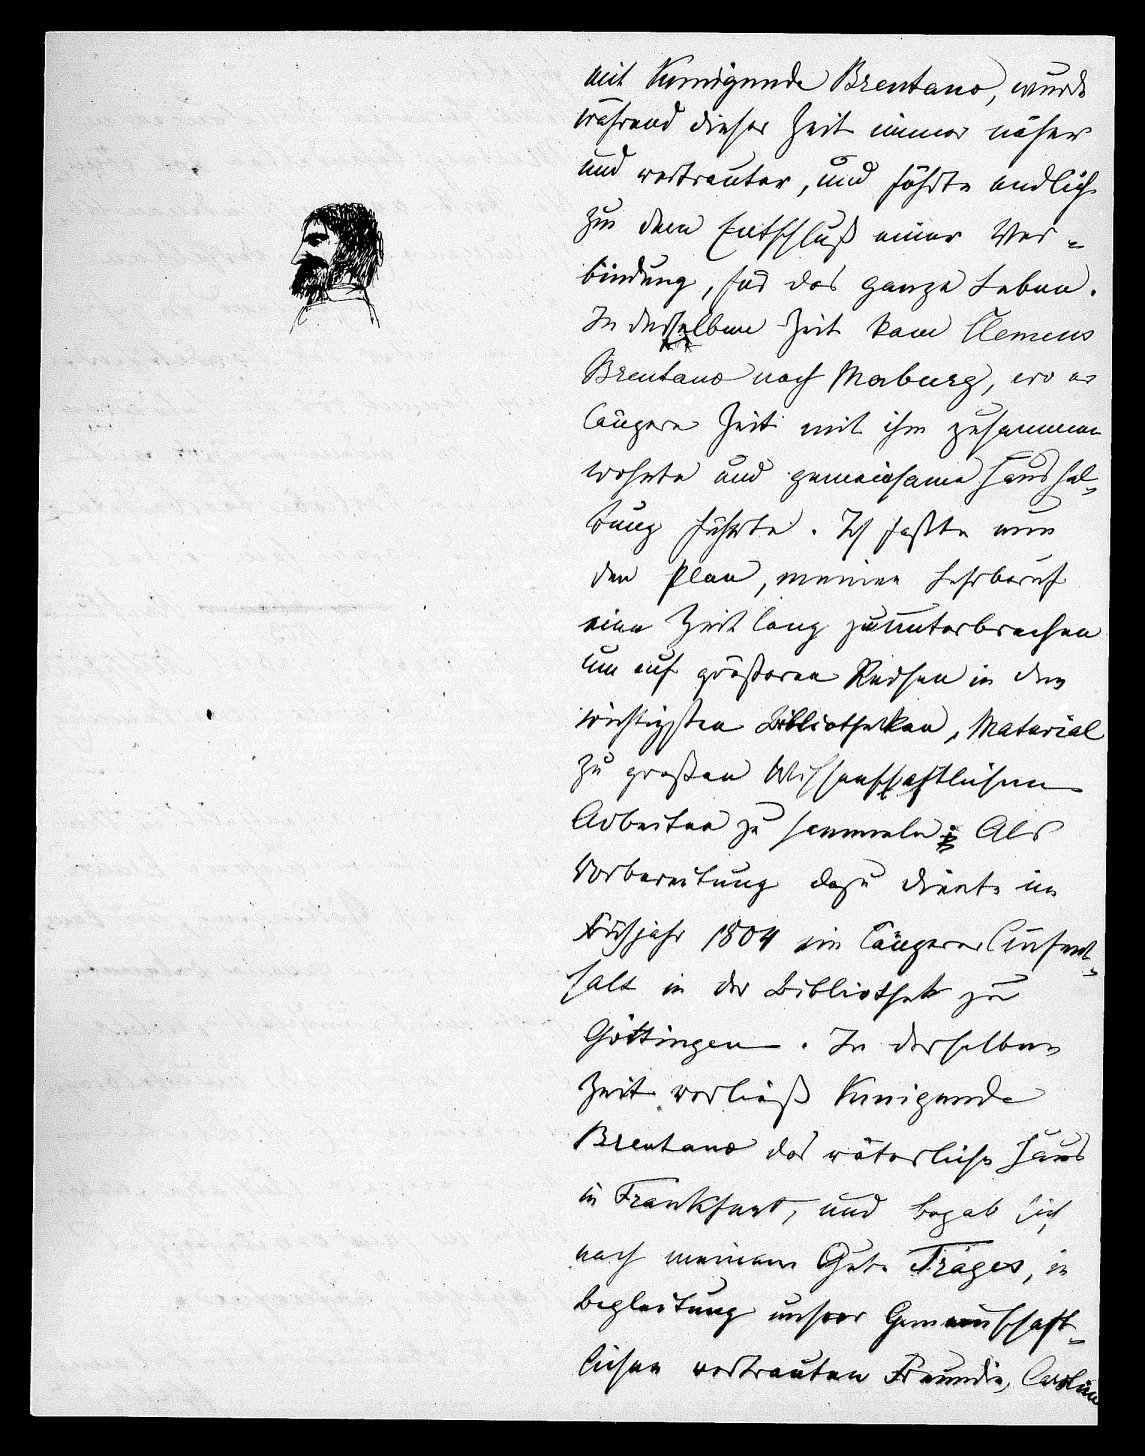 mit Kunigunde Brentano, wurde
während dieser Zeit immer näher
und vertrauter, und führte endlich
zu dem Entschluß einer Ver-
bindung, für das ganze Leben.
In derselben Zeit kam Clemens
Brentano nach Marburg, wo er
längere Zeit mit ihm zusammen
wohnte und gemeinsame Haushal-
tung führte. Ich faßte nun
den Plan, meinen Lehrberuf
eine Zeit lang zu unterbrechen
um auf größeren Reisen in den
wichtigsten Bibliotheken, Material
zu großen Wissenschaftlichen
Arbeiten zu sammeln; Als
Vorbereitung dazu diente im
Frühjahr 1804 ein längerer Aufent-
halt in der Bibliothek zu
Göttingen. In derselben
Zeit verließ Kunigunde
Brentano das väterliche Haus
in Frankfurt, und begab sich
nach meinem Gute Träges, in
Begleitung unsrer Gemeinschaft-
lichen vertrauten Freundin, Caroline